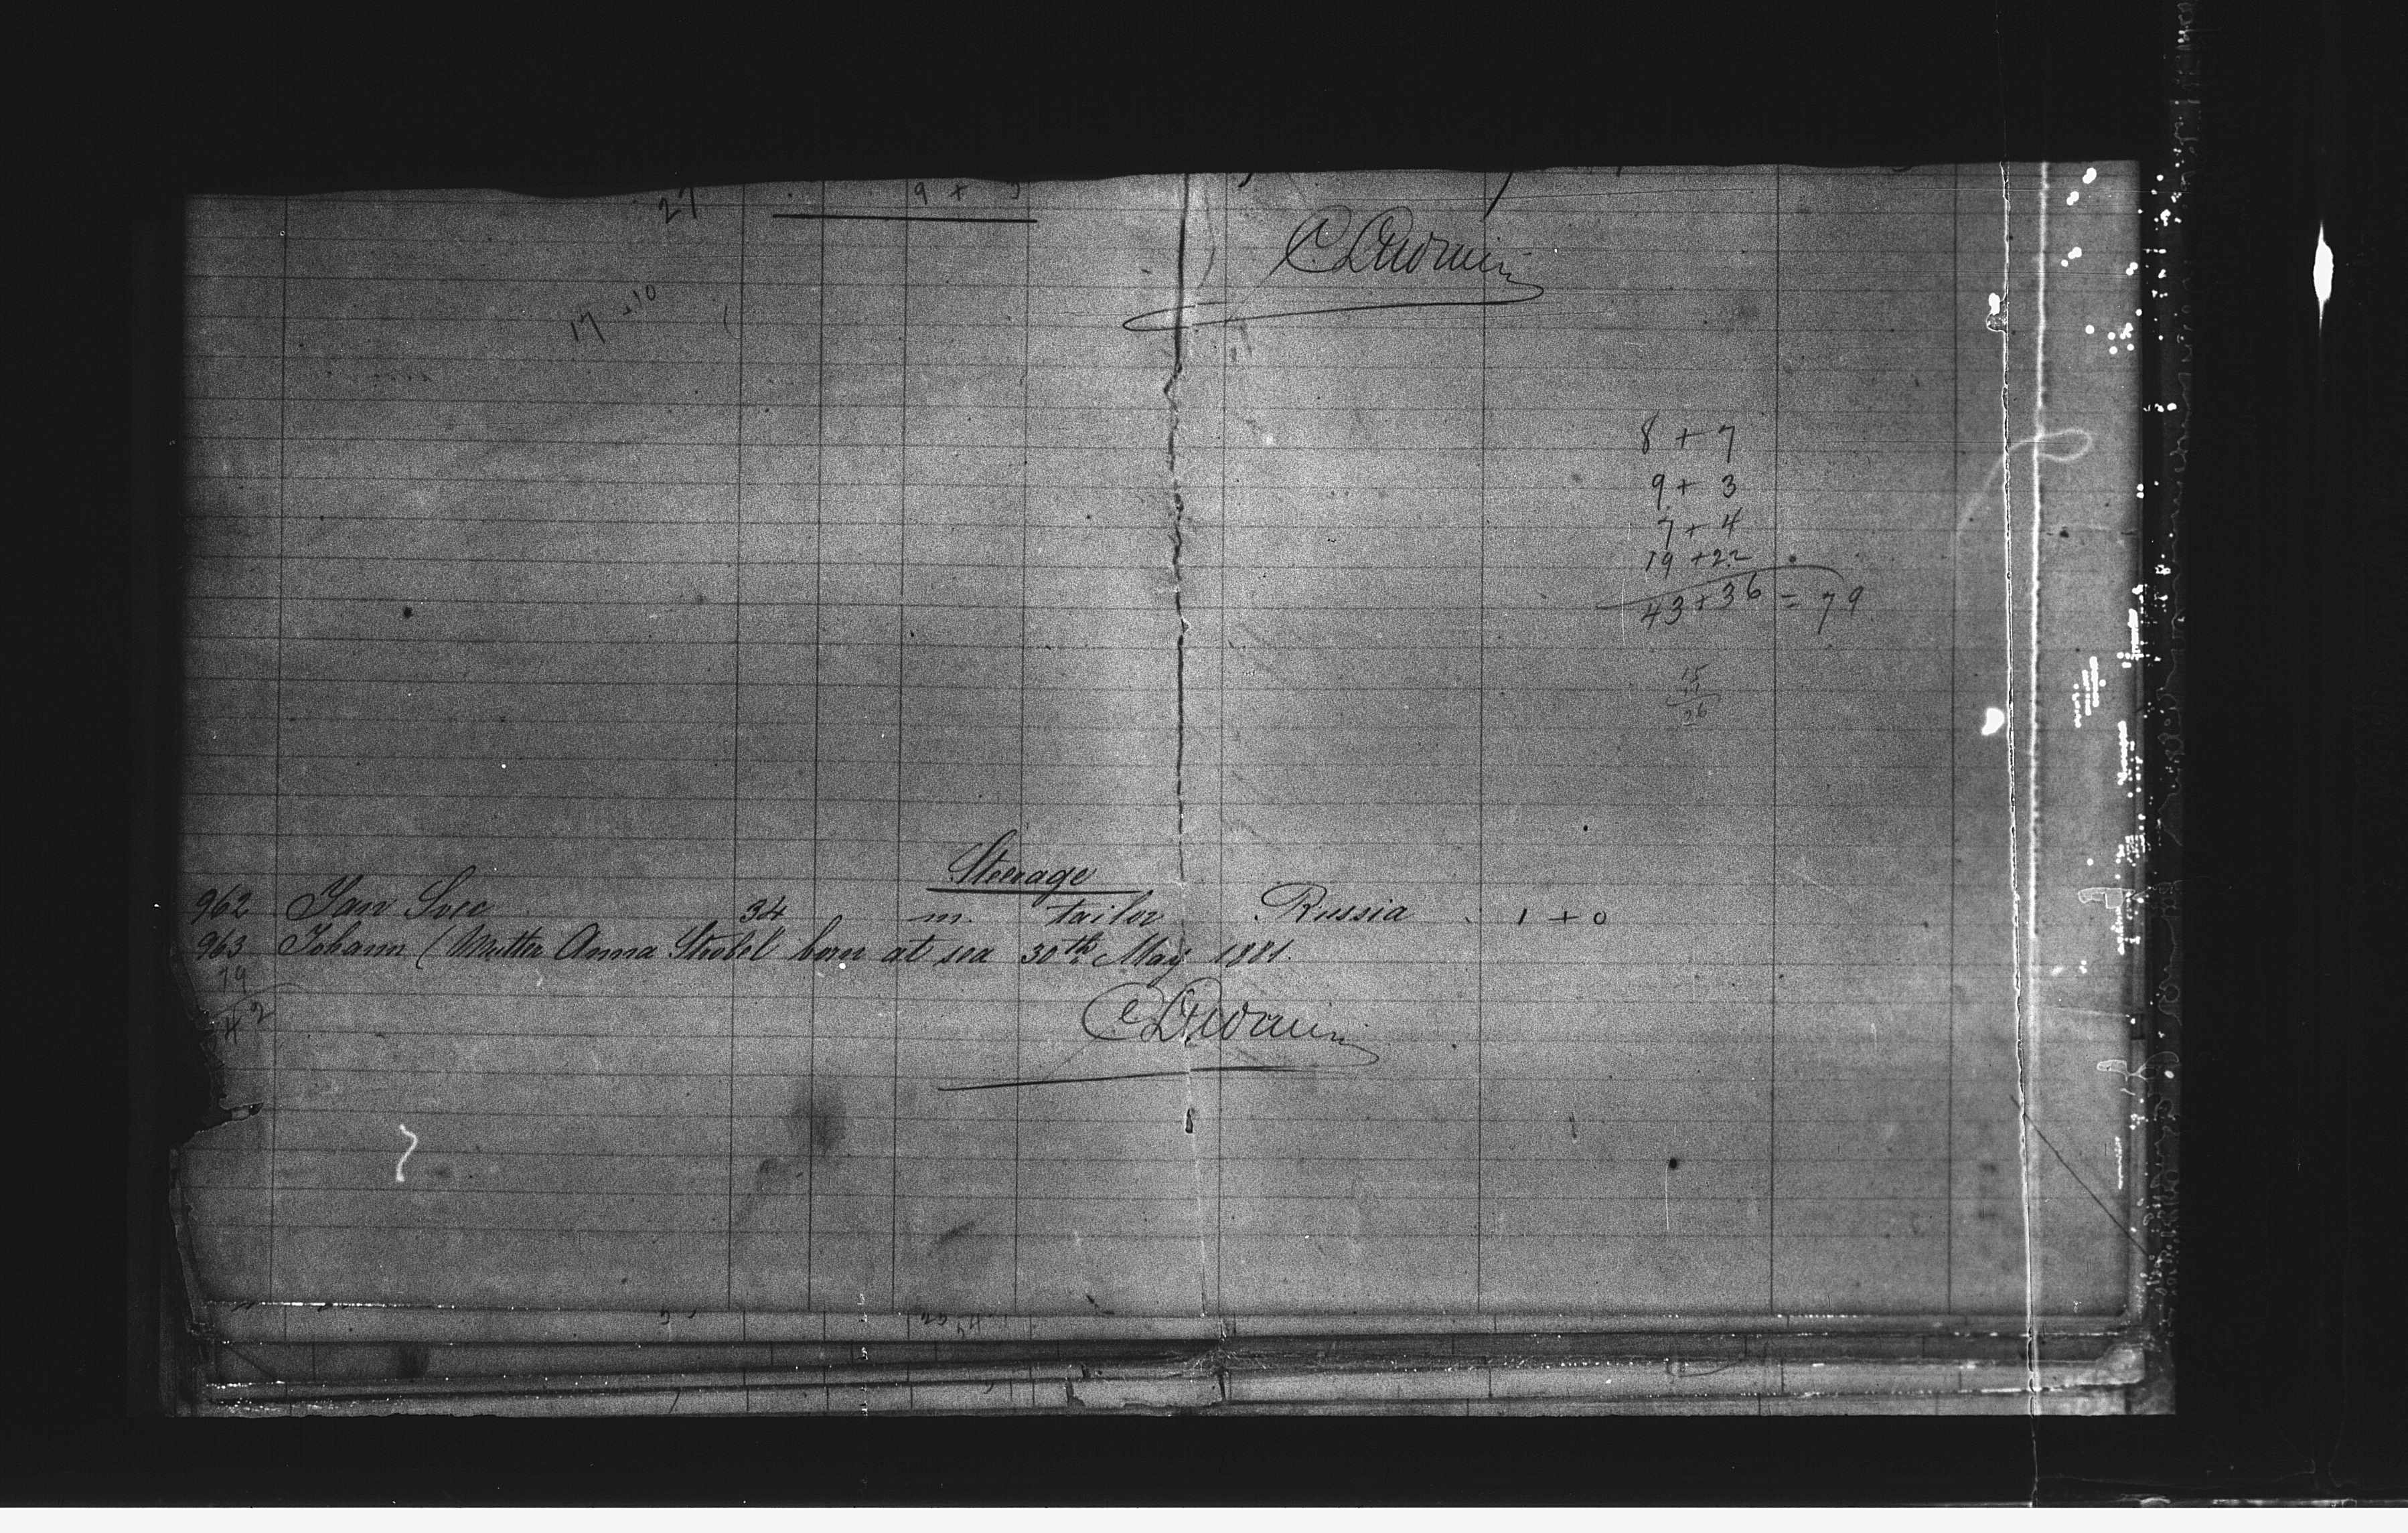 27 9 +
17 +10
8 + 7
9 + 3
7 + 4
19 +22
43+36 = 79
15
26
Steerage
962 Jan Svec 34 m. tailor Russia 1 + 0
963 Johann (Mutter Anna Strobel born at sea 30th May 1881.
79
42